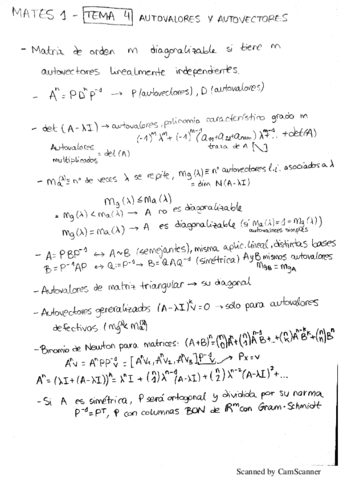 MATES 1 - TEMA 4 AUTOVALORES Y AUTOVECTORES
- Matriz de orden m diagonalizable si tiene m
autovectores linealmente independientes.
- Aⁿ = PDⁿP⁻¹ → P (autovectores), D (autovalores)
- det (A-λI) → autovalores, polinomio característico grado m
(-1)ᵐλᵐ + (-1)ᵐ⁻¹(a₁₁+a₂₂+aₘₘ)λᵐ⁻¹... + det(A)
Autovalores multiplicados = det(A)
traza de A
- mₐ(λ) ≡ nº de veces λ se repite, mg(λ) ≡ nº autovectores l.i. asociados a λ
= dim N(A-λI)
mg(λ) ≤ ma(λ)
• mg(λ) < ma(λ) → A no es diagonalizable
mg(λ) = ma(λ) → A es diagonalizable (si ma(λ)=1=mg(λ))
autovalores simples
- A = PBP⁻¹ ↔ A~B (semejantes), misma aplic. lineal, distintas bases
B = P⁻¹AP ↔ Q=P⁻¹→ B=QAQ⁻¹ (simétrica) A y B mismos autovalores
- Autovalores de matriz triangular → su diagonal
- Autovectores generalizados (A-λI)ᵏv=0 → sólo para autovalores
defectivos
- Binomio de Newton para matrices:
Px=v
- Si A es simétrica, P será ortogonal y dividida por su norma
P⁻¹=Pᵀ, P con columnas BON de ℝᵐ con Gram-Schmidt
Scanned by CamScanner